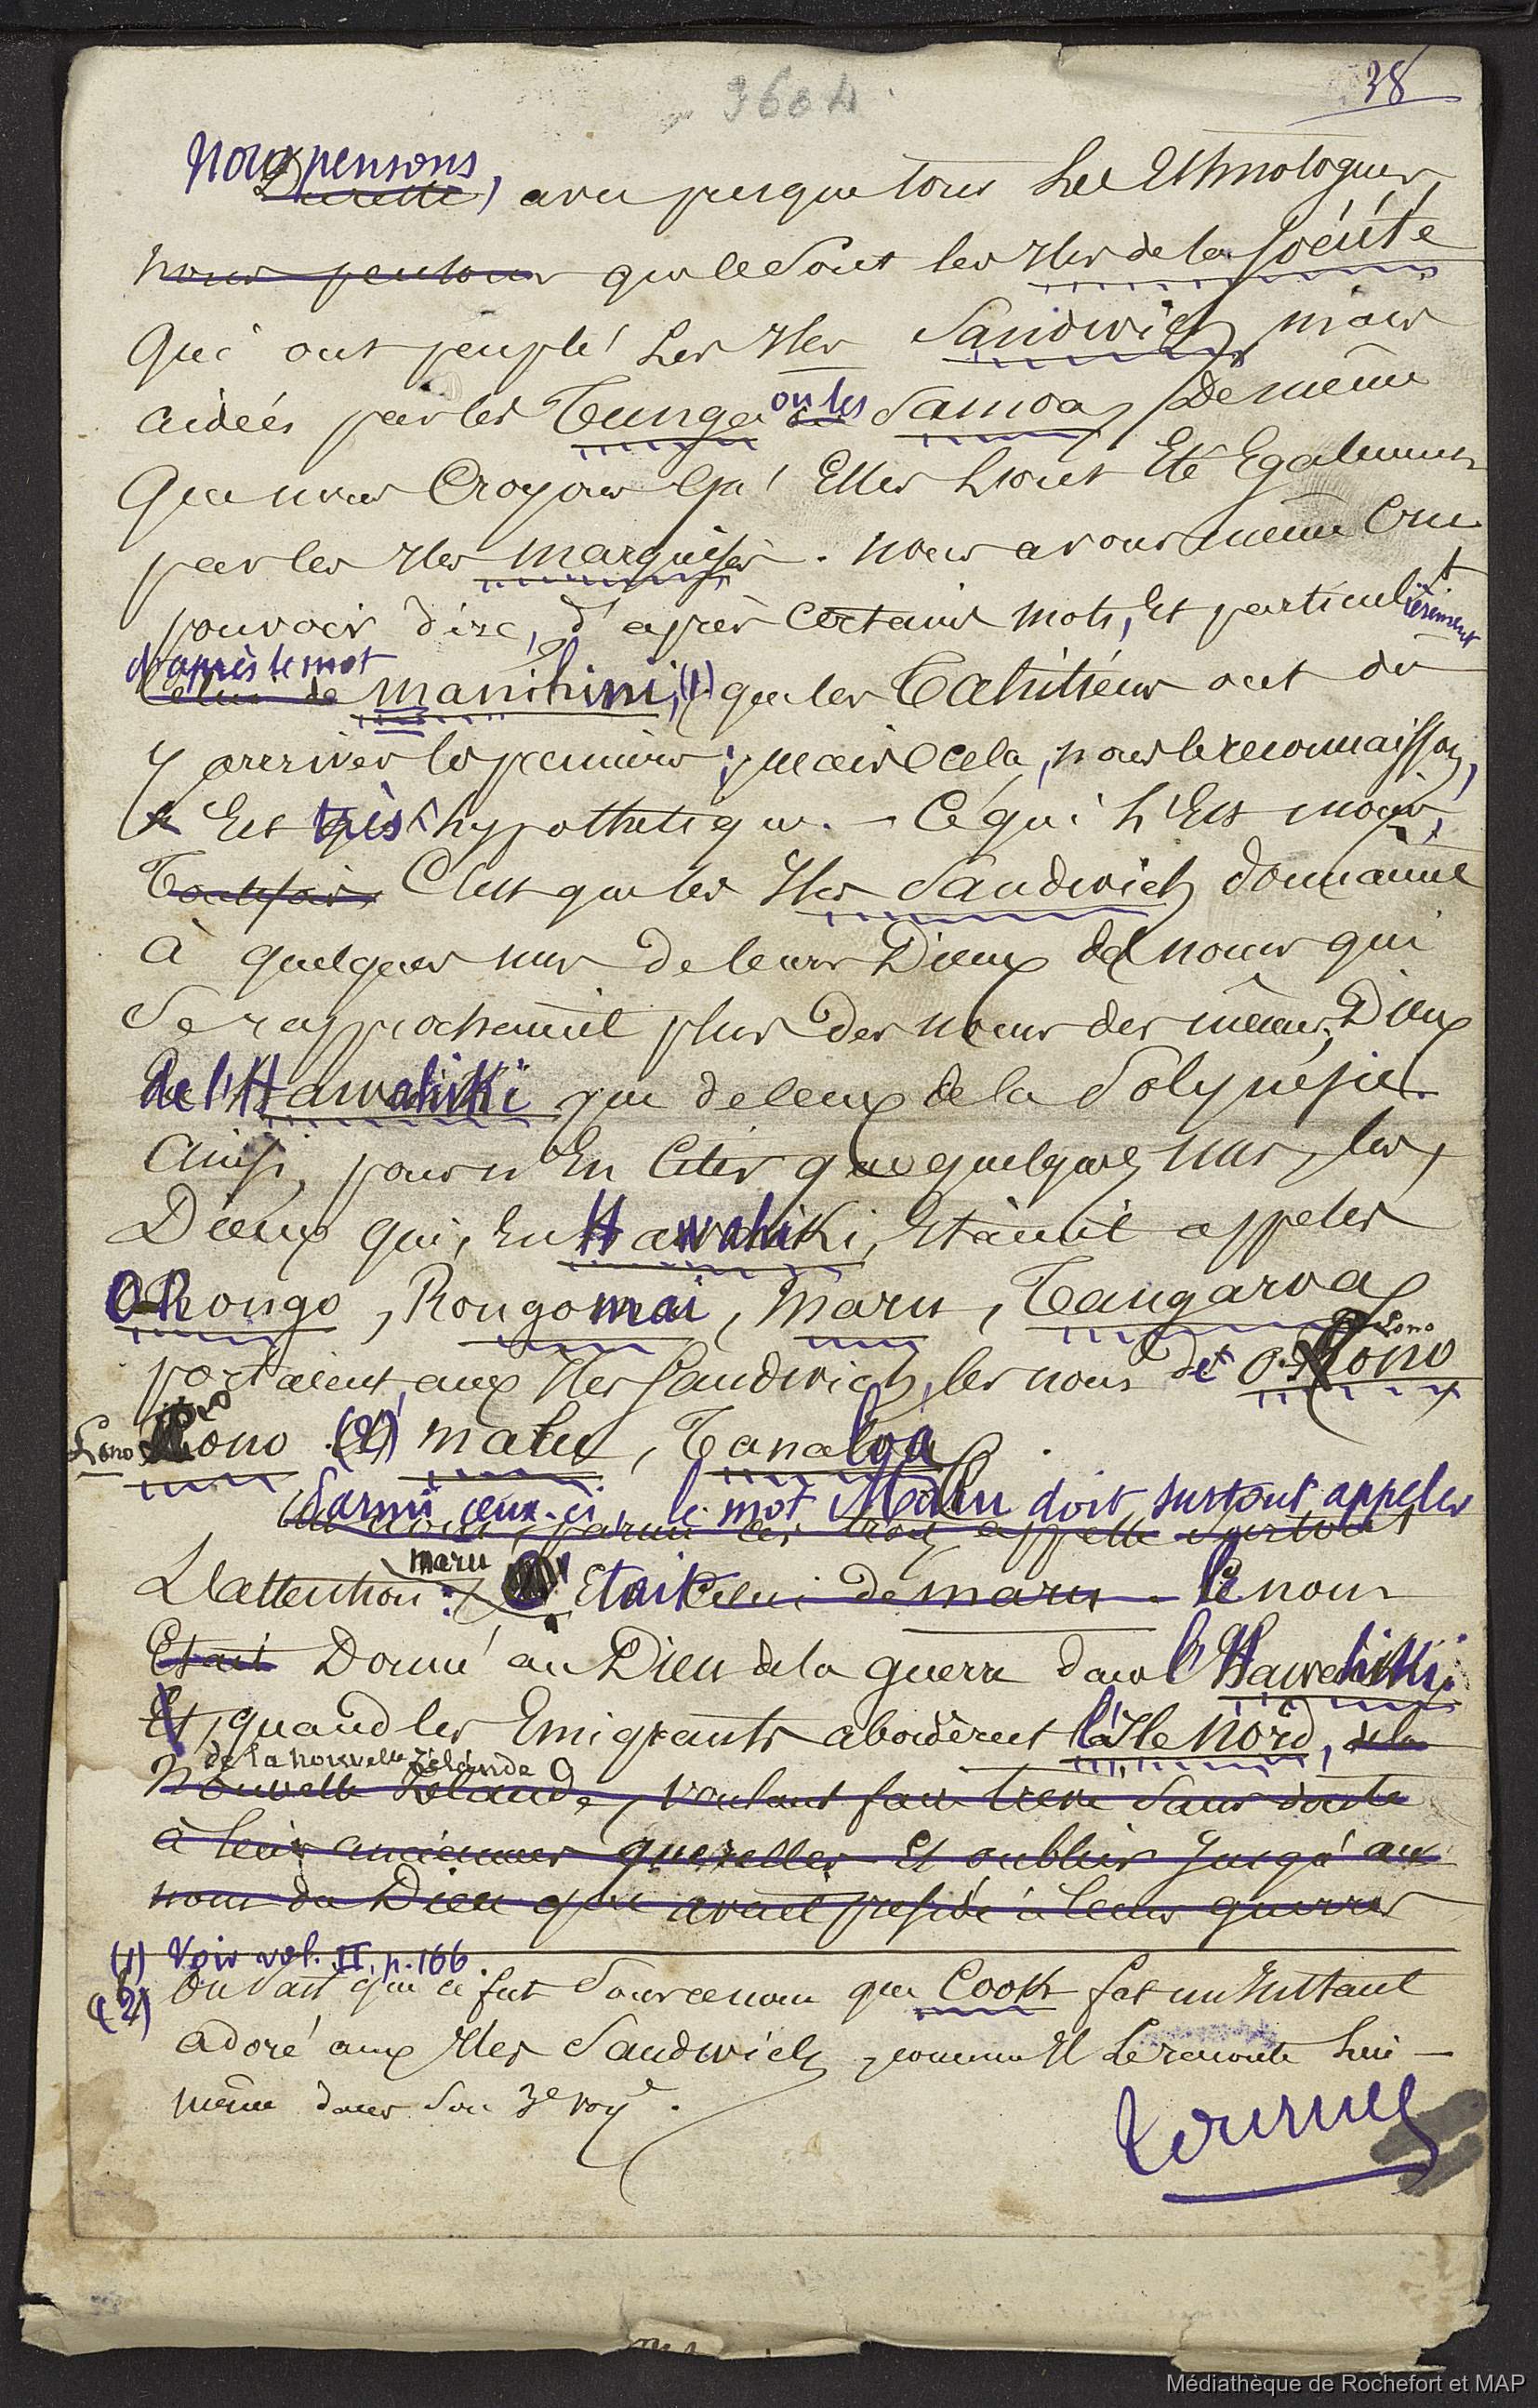 3604
38
Nous pensons, avec presque tous les Ethnologues,
nous pensons que ce sont les Iles de la Société
qui ont peuplé les Iles Sandwich, mais
aidées par les Tunga ou les Samoa, de même
que nous croyons qu'Elles l'ont Eté Egalement
par les Iles Marquises. nous avons même cru
pouvoir dire, d'après certains mots, Et particulièrement
d'après le mot
celui de manihini, (1) que les Tahitiens ont dû
y arriver les premiers; mais cela, nous le reconnaissons,
Est très hypothétique. - Ce qui l'Est moins,
Toutefois C'est que les Iles Sandwich donnaient
à quelques uns de leurs Dieux des noms qui
se rapprochaient plus des noms des mêmes Dieux
de l'Hawahiki que de ceux de la Polynésie.
Ainsi, pour n'En citer que quelques uns, les
Dieux qui, En Hawahiki, Etaient appelés
O Rongo, Rongomai, Maru, Tangaroa
portaient, aux Iles Sandwich, les noms de O. Rono
Lono
Lono Rono (2) matu, Tanaloa.
Parmi ceux-ci, le mot Matu doit surtout appeler
L'attention: maru Etait celui de maru. le nom
Etait Donné au Dieu de la guerre dans l'Hawahiki.
Et, quand les Emigrants abordèrent à l'Ile Nord, de la
de la Nouvelle Zélande
Nouvelle Zélande, voulant faire trève sans doute
à leurs anciennes querelles Et oublier jusqu'au
nom du Dieu qui avait présidé à leurs guerres
(1) Voir vol. II. p. 166.
(2) On sait que ce fut sous ce nom que Cook fut un Instant
adoré aux Iles Sandwich, comme Il le raconte lui-
même dans son 3e voy.
tournez
Médiathèque de Rochefort et MAP